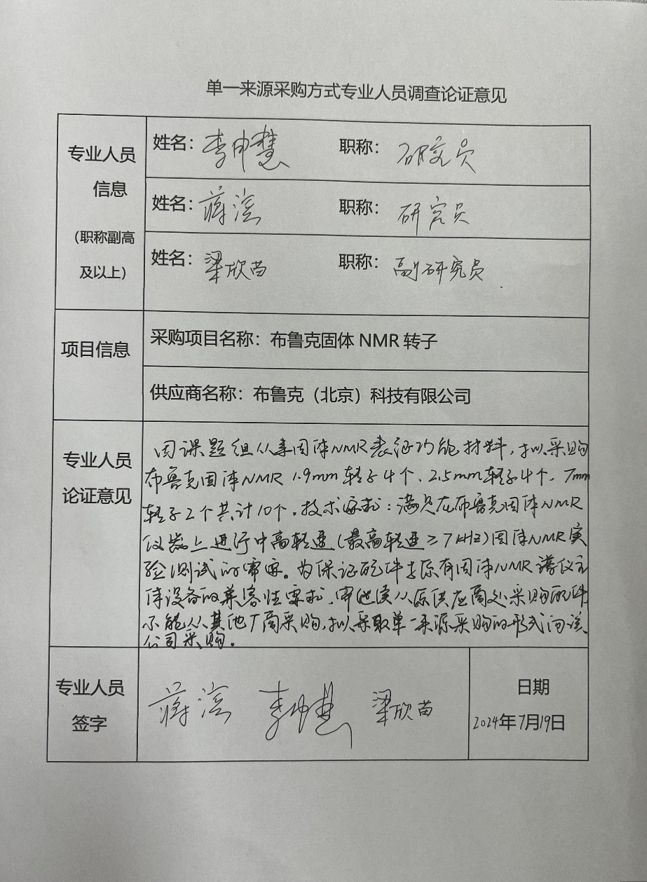 单一来源采购方式专业人员调查论证意见
专业人员
信息
（职称副高
及以上）
姓名：李申慧 职称：研究员
姓名：蒋滨 职称：研究员
姓名：梁欣苗 职称：副研究员
项目信息
采购项目名称：布鲁克固体 NMR 转子
供应商名称：布鲁克（北京）科技有限公司
专业人员
论证意见
因课题组从事固体NMR表征功能材料，拟采购
布鲁克固体NMR 1.9mm转子4个、2.5mm转子4个、7mm
转子2个共计10个。技术要求：满足在布鲁克固体NMR
仪器上进行中高转速（最高转速≥7kHz）固体NMR实
验测试的需要。为保证配件与原有固体NMR谱仪主
体设备的兼容性要求，申请从原供应商处采购配件
不能从其他厂商采购，拟采取单一来源采购的形式向该
公司采购。
专业人员
签字
蒋滨 李申慧 梁欣苗
日期
2024年7月19日